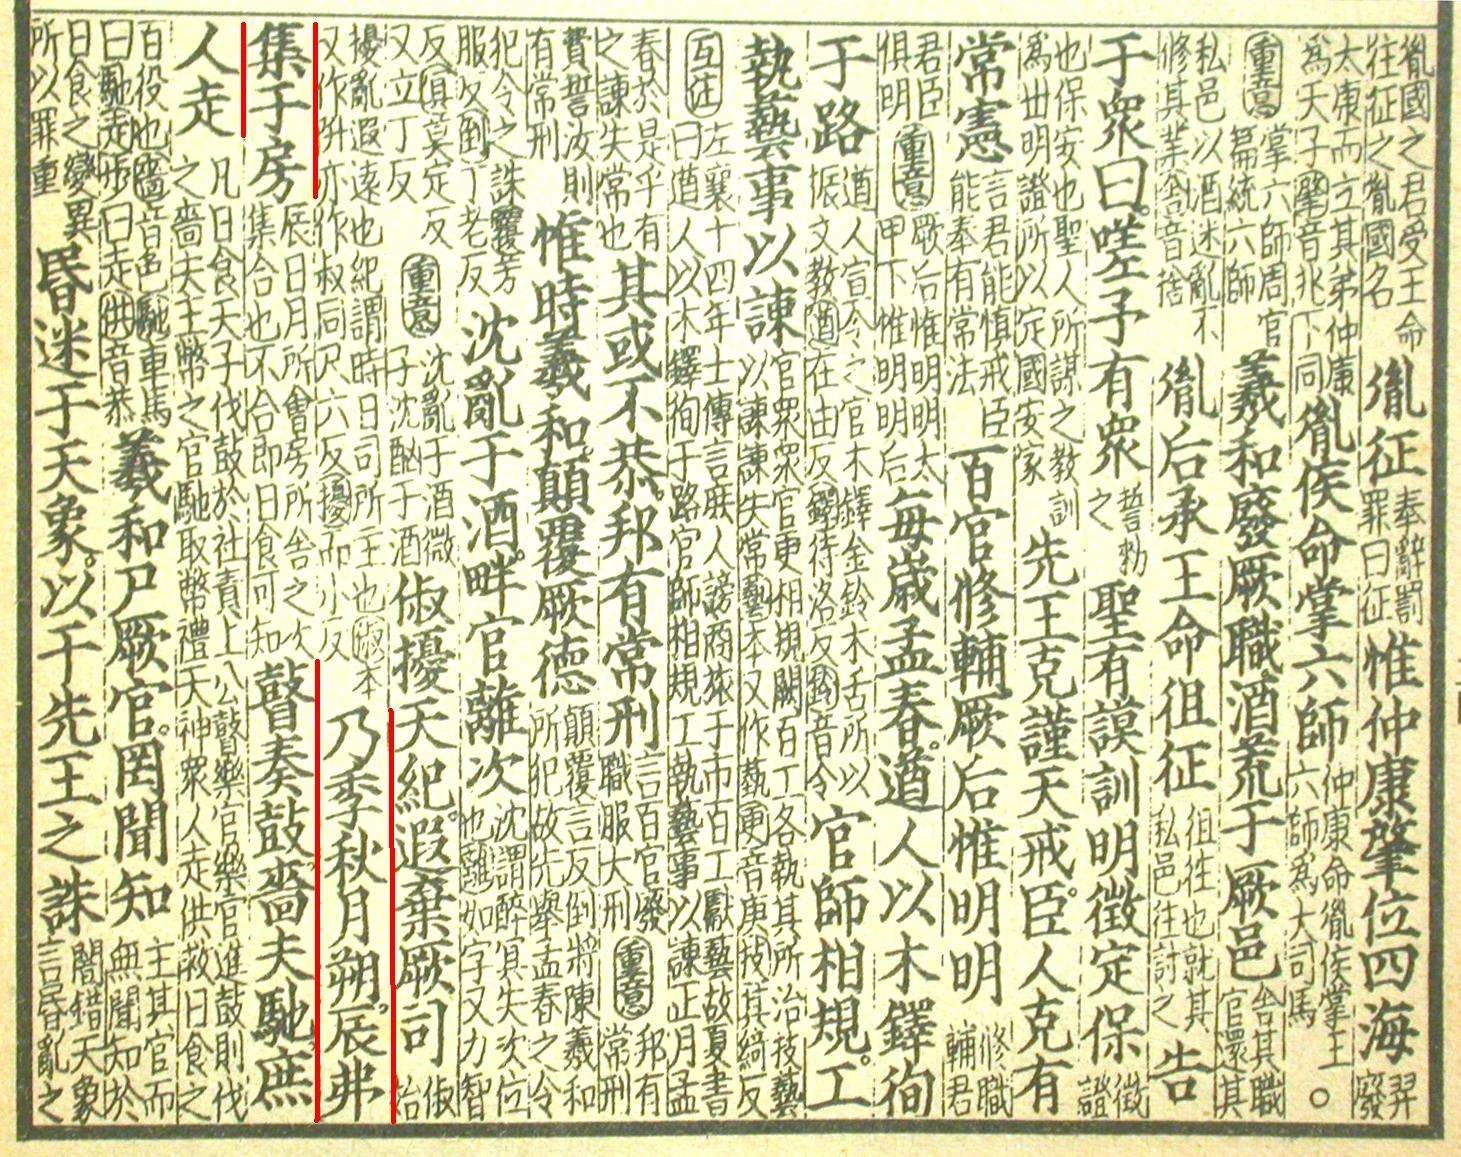 胤國之君受王命
往征之胤國名
胤征
奉辭罰
罪曰征
惟仲康肇位四海
羿
廢
太康而立其弟仲康
為天子肇音兆下同
胤侯命掌六師
仲康命胤侯掌王
六師為大司馬
○
重意
掌六師周官
篇統六師
羲和廢厥職酒荒于厥邑
舍其職
官還其
私邑以酒迷亂不
修其業舍音捨
胤后承王命徂征
徂往也就其
私邑往討之
告
于眾曰嗟予有眾
誓勑
之
聖有謨訓明徵定保
徵
證
也保安也聖人所謀之教訓
為世明證所以定國安家
先王克謹天戒。臣人克有
常憲
言君能慎戒臣
能奉有常法
百官修輔厥后惟明明
修職
輔君
君臣
俱明
重意
厥后惟明明太
甲下惟明明后
每歲孟春。遒人以木鐸徇
于路
遒人宣令之官木鐸金鈴木舌所以
振文教遒在由反鐸待洛反鈴音令
官師相規。工
執藝事以諫
官眾眾官更相規闕百工各執其所治技藝
以諫諫失常藝本又作蓺更音庚技其綺反
互註
左襄十四年士傳言庶人謗商旅于市百工獻藝故夏書
曰遒人以木鐸徇于路官師相規工執藝事以諫正月孟
春於是乎有
之諫失常也
其或不恭。邦有常刑
言百官發
職服大刑
重意
邦有
常刑
費誓汝則
有常刑
惟時羲和。顛覆厥德
顛覆言反倒將陳羲和
所犯故先舉孟春之令
犯令之誅覆芳
服反倒丁老反
沈亂于酒。畔官離次
沈謂醉冥失次位
也離如字又力智
反俱莫定反
又立丁反
重意
沈亂于酒微
子沈酗于酒
俶擾天紀。遐棄厥司
俶
始
擾亂遐遠也紀謂時日司所主也俶本
又作亦作叔同尺六反擾而小反
乃季秋月朔。辰弗
集于房
辰日月所會房所舍之次
集合也不合即日食可知
瞽奏鼓嗇夫馳庶
人走
凡日食天子伐鼓於社責上公瞽樂官樂官進鼓則伐
之嗇夫主幣之官馳取幣禮天神眾人走供救日食之
百役也嗇音色馳車馬
曰馳走步曰走供音恭
羲和尸厥官。罔聞知
主其官而
無聞知於
日食之變異
所以罪重
昏迷于天象。以干先王之誅
闇錯天象
言昏亂之